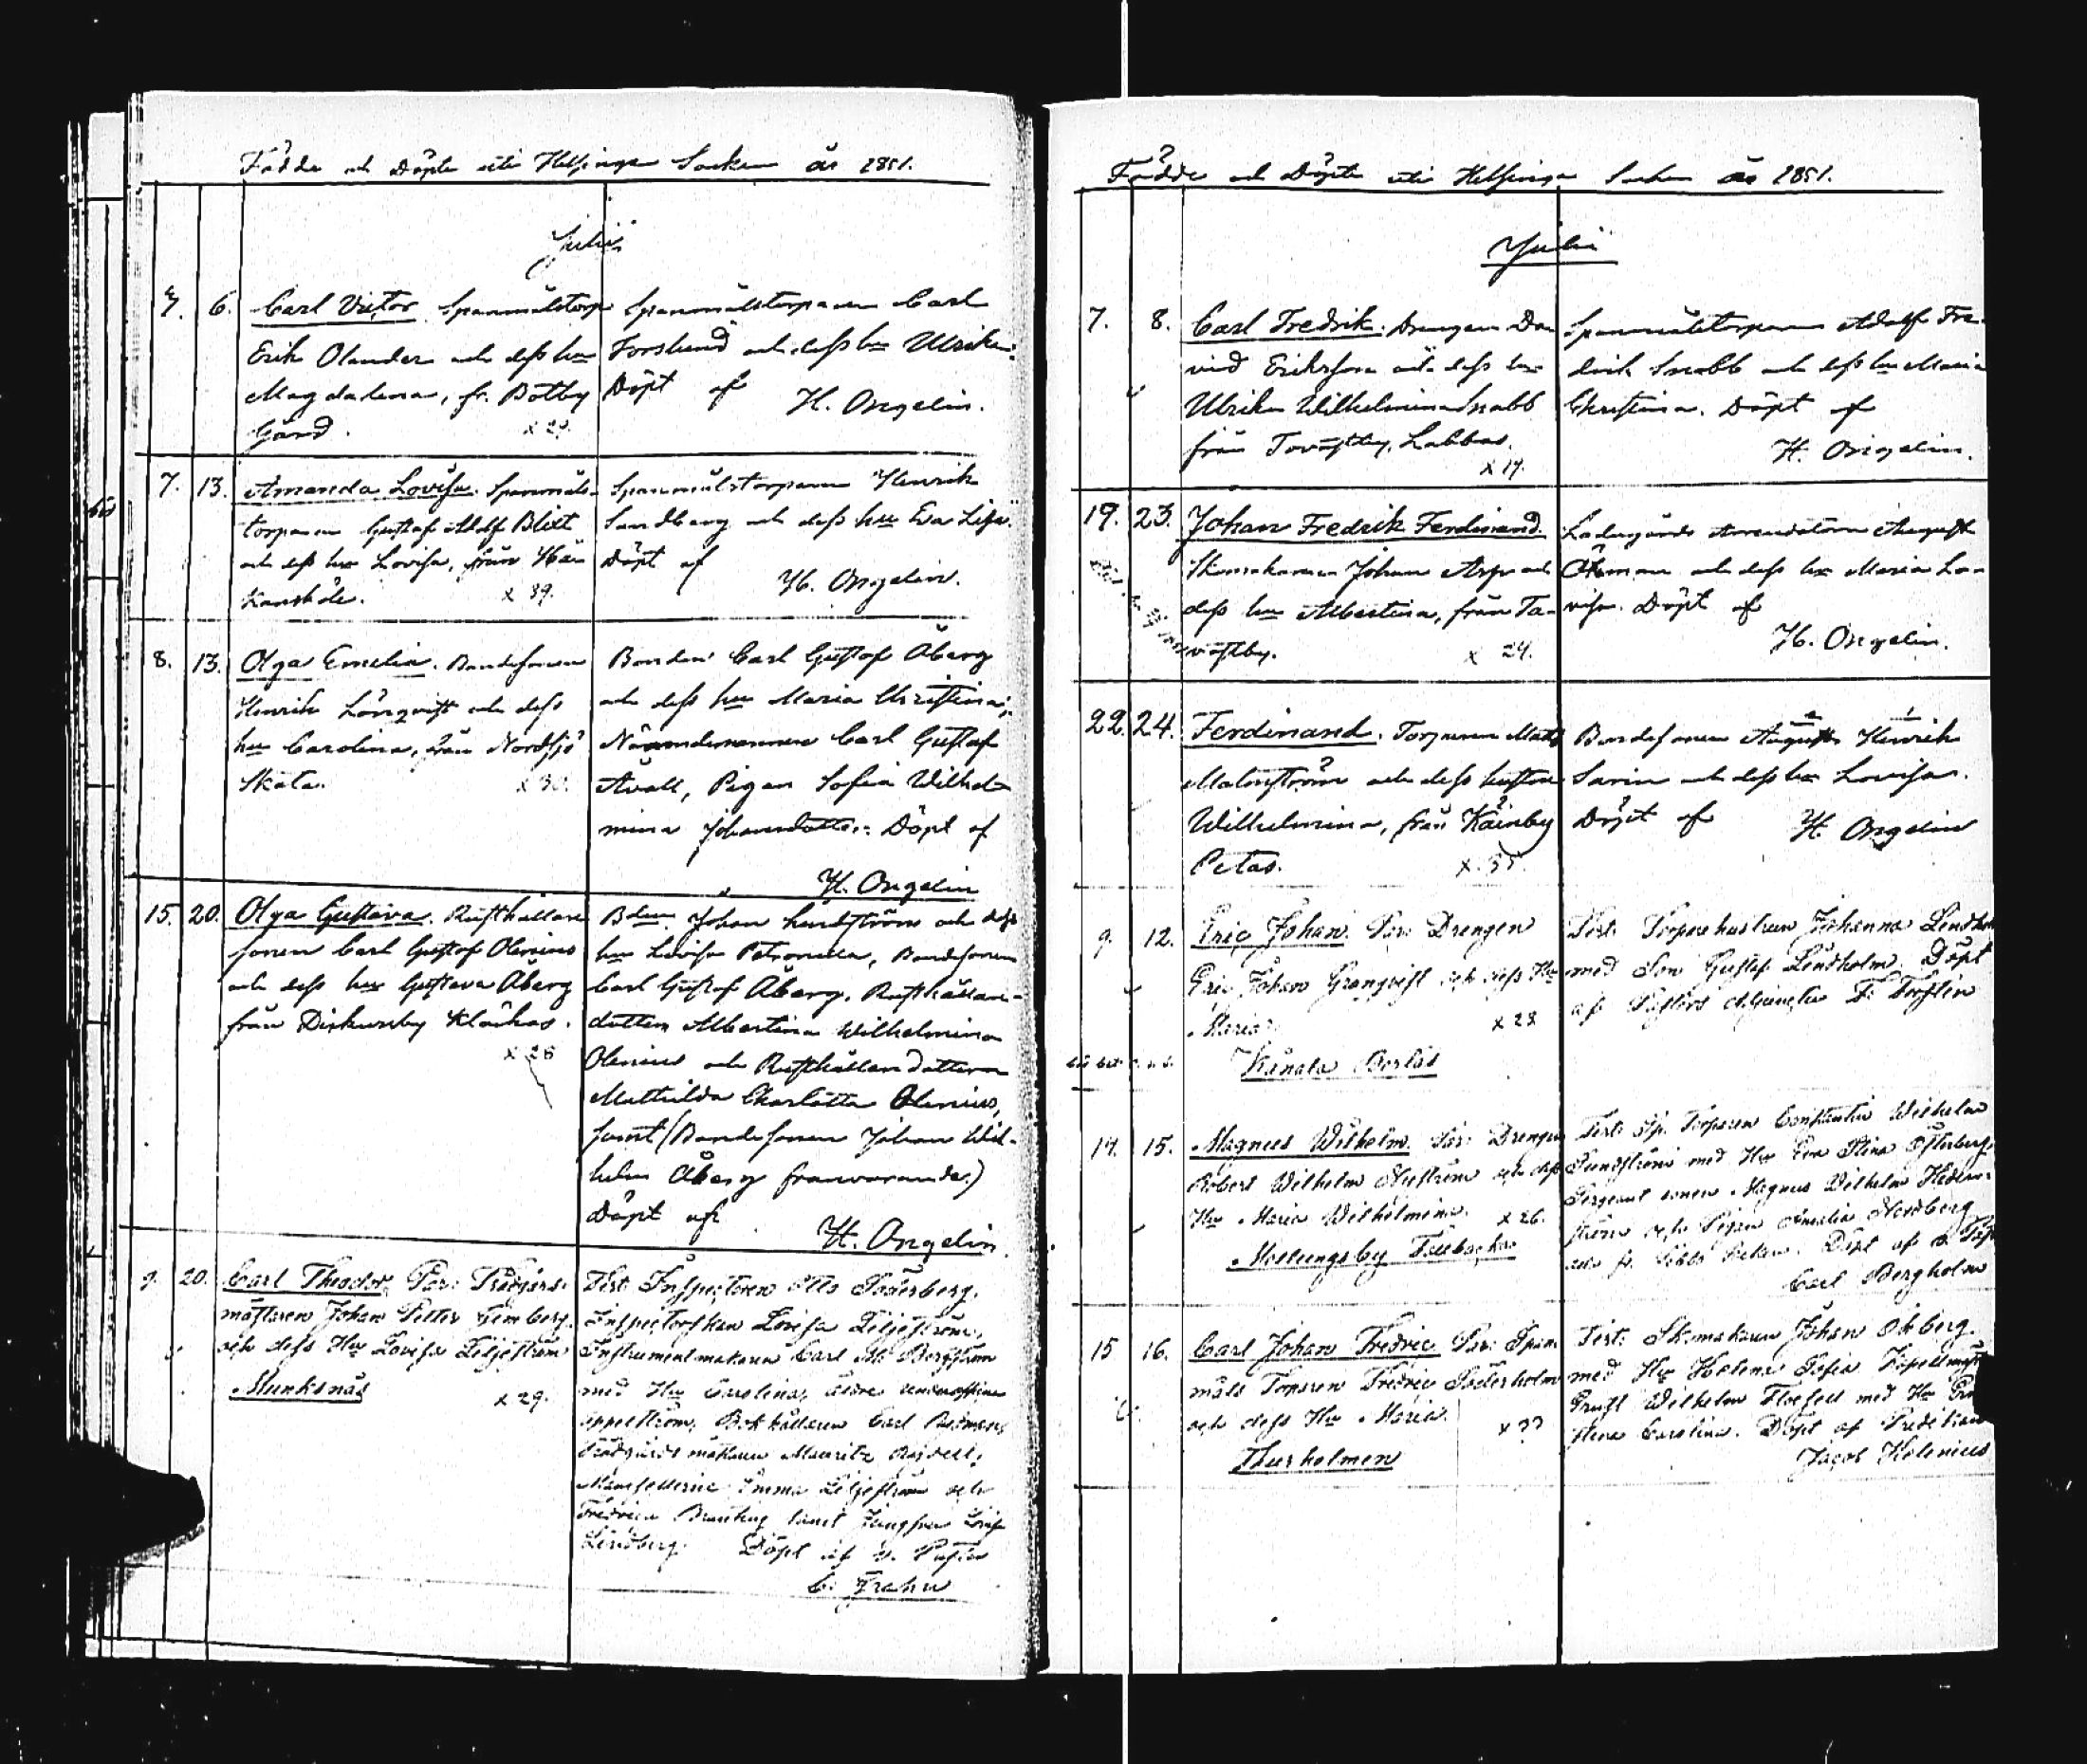 Födde och Döpte uti Helsinge Socken år 1851.
Julii
7. 6. Carl Victor. Spanmålstorp
Erik Olander och dess hu
Magdalena, fr. Botby
Gård. x 29.
Spanmålstorparen Carl
Forslund och dess hu Ulrika.
Döpt af H. Ongelin.
7. 13. Amanda Lovisa. Spanmåls-
torparen Gustaf Adolf Blixt
och dess hu Lovisa, från
x 39.
Spanmålstorparen Henrik
Sandberg och dess hu Eva Lisa.
Döpt af
H. Ongelin.
8. 13. Olga Emelia. Bondesonen
Henrik Lönqvist och dess
hu Carolina, från Nordsjö
Skata. x 30.
Bonden Carl Gustaf Åberg
och dess hu Maria Christina,
Nämndemannen Carl Gustaf
Avall, Pigan Sofia Wilhel-
mina Johansdotter. Döpt af
H. Ongelin
15. 20. Olga Gustava. Rusthållare
sonen Carl Gustaf Olenius
och dess hu Gustava Åberg
från Dickursby Klåckas.
x 26
Bden Johan Lundström och dess
hu Lovisa Petronella, Bondesonen
Carl Gustaf Åberg, Rusthållare-
dottern Albertina Wilhelmina
Olenius och Rusthållaredottern
Mathilda Charlotta Olenius,
samt (Bondesonen Johan Wil-
helm Åberg franvarande.)
Döpt af
H. Ongelin.
9. 20. Carl Theodor. Par: Trädgårds-
mästaren Johan Petter
och dess Hu Lovisa Liljeström
Munksnäs x 29.
Test: Inspectoren Otto Söderberg,
Inspectorskan Lovisa Liljeström,
Instrumentmakaren Carl Bergström
med Hu Carolina,
Bokhållaren Carl
Trädgårdsmästaren Mauritz
Mamsellerne Emma Liljeström och
Fredrica samt Jungfru
Lindberg. Döpt af
C. Frahn
Födde och Döpte uti Helsinge Socken år 1851.
Julii
7. 8. Carl Fredrik. Drengen Da-
vid Eriksson och dess hu
Ulrika Wilhelmina Snabb
från Tavastby, Labbas.
x 19.
Spanmålstorparen Adolf Fre-
drik Snabb och dess hu Maria
Christina. Döpt af
H. Ongelin.
19. 23. Johan Fredrik Ferdinand.
Skomakaren Johan Asp och
dess hu Albertina, från Ta-
vastby. x 24.
Ladugårds Arrendatorn August
Öhman och dess hu Maria Lo-
visa. Döpt af
H. Ongelin.
22. 24. Ferdinand. Torparen Mats
Malmström och dess hustru
Wilhelmina, från Kårby
Petas. x. 35.
Bondesonen August Henrik
Sarin och dess hu Lovisa.
Döpt af H. Ongelin
9. 12. Eric Johan. Par: Drengen
Eric Johan Granqvist och dess Hu
Maria. x 28
Kånala
Test: Torpare hustrun Johanna Lindholm
med Son Gustaf Lindholm. Döpt
af Pastors Adjuncten F.
14. 15. Magnus Wilhelm. Par: Drengen
Robert Wilhelm Nyström och dess
Hu Maria Wilhelmina. x 26.
Mellungsby
Test: Torparen Constantin Wilhelm
Sundström med Hu Eva Stina Österberg,
Sergeant sonen Magnus Wilhelm
och Pigan Amalia Nordberg
Döpt af
Carl Bergholm
15 16. Carl Johan Fredric. Par: Span-
måls Torparen Fredric Söderholm
och dess Hu Maria. x 33
Thurholmen
Test: Skomakaren Johan Okberg
med Hu Helena Sofia
Ernst Wilhelm med Hu
Carolina. Döpt af Predikan
Jacob Helenius